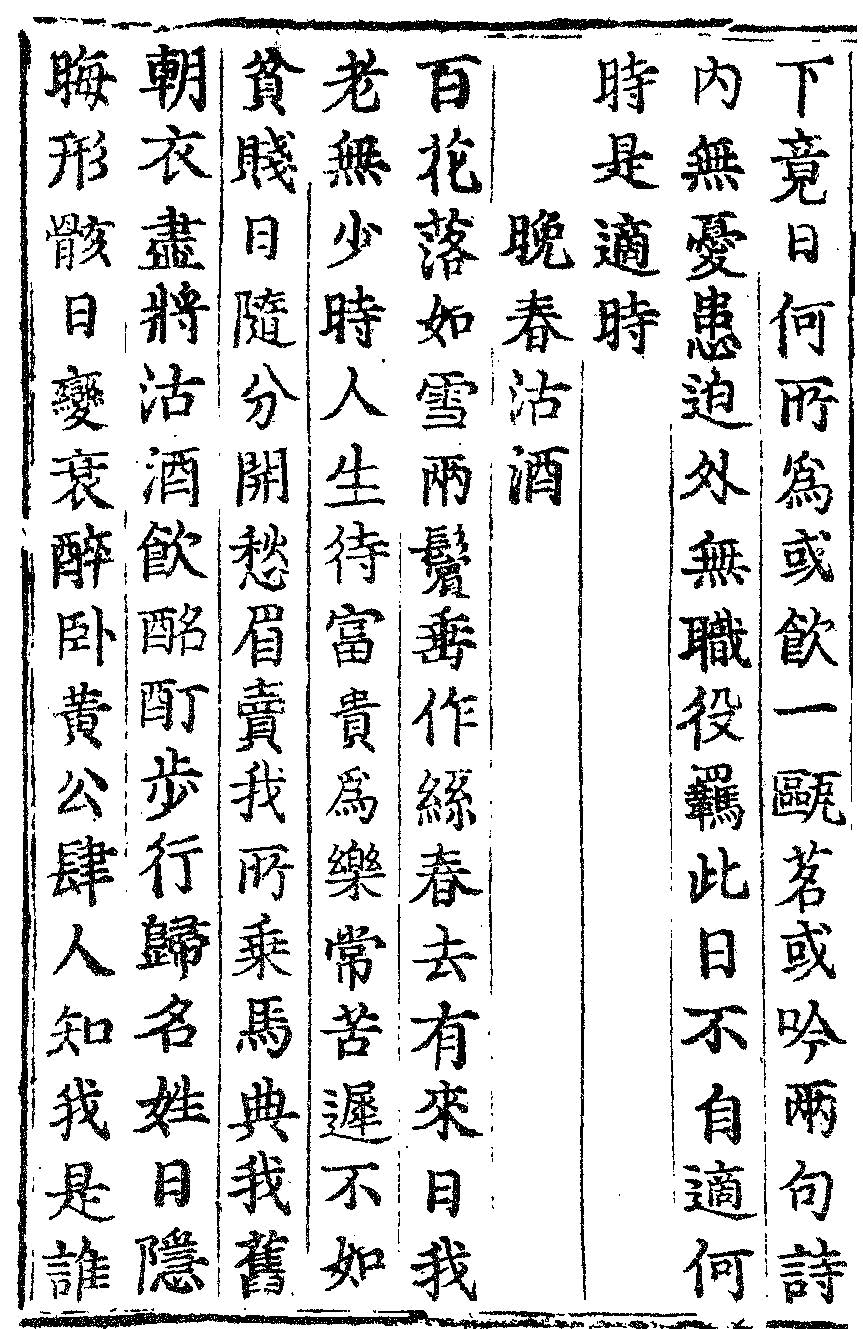 下竟日何所爲或飲一甌茗或吟兩句詩
内無憂患迫外無職役羈此日不自適何
時是適時
晚春沽酒
百花落如雪兩鬢垂作絲春去有來日我
老無少時人生待富貴爲樂常苦遲不如
貧賤日隨分開愁眉賣我所乗馬典我舊
朝衣盡將沽酒飲酩酊步行歸名姓日隱
晦形骸日變衰醉卧黄公肆人知我是誰